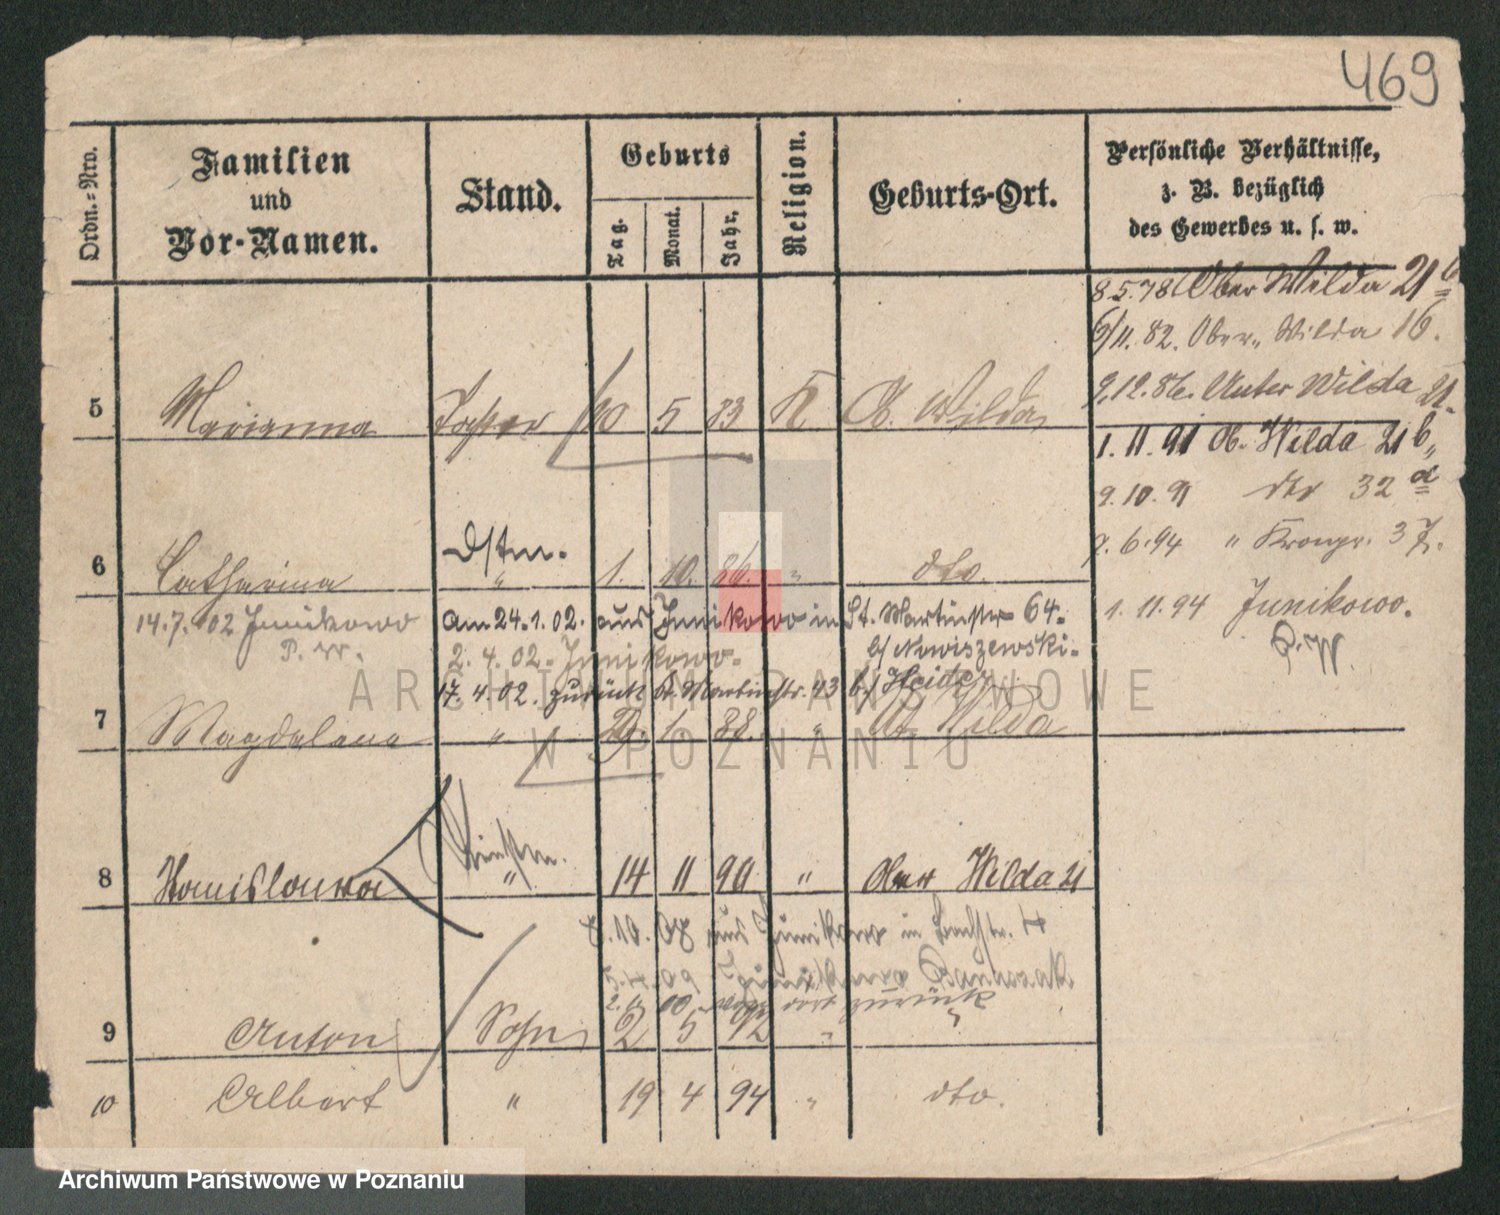 469
Ordn.-Nro.
Familien
und
Vor-Namen.
Stand.
Geburts
Tag.
Monat.
Jahr.
Religion.
Geburts-Ort.
Persönliche Verhältnisse,
z. B. bezüglich
des Gewerbes u. s. w.
8.5.78 Ober Wilda 21 b
6/11. 82. Ober-Wilda 16.
9.12.86. Unter Wilda 21.
5 Marianna Tochter 10 5 83 K O. Wilda
1. 11. 91 Ob. Wilda 21 b
9. 10. 91 dto 32 a
6 Catharina Dstm. " 1. 10. 86. " dto.
9. 6. 94 " Kronpr. 37.
1. 11. 94 Junikowo.
P. W.
14.7.02 Junikowo
P. W.
am 24.1.02. aus Junikowo in St. Martinstr 64.
b/ Nowiszewski.
2. 4. 02. Junikowo.
17. 4. 02. zurück St. Martinstr. 43 b/ Heider
7 Magdalena " 1. 88. " Ob. Wilda
8 Stanislawa " 14 11 90 " Ober Wilda 21
8.10.08 aus Junikowo in Bachstr. 4
Junikowo
von dort zurück
9 Anton Sohn 2 5 92 " "
10 Albert " 19 4 94 " dto.
ARCHIWUM PAŃSTWOWE
W POZNANIU
Archiwum Państwowe w Poznaniu